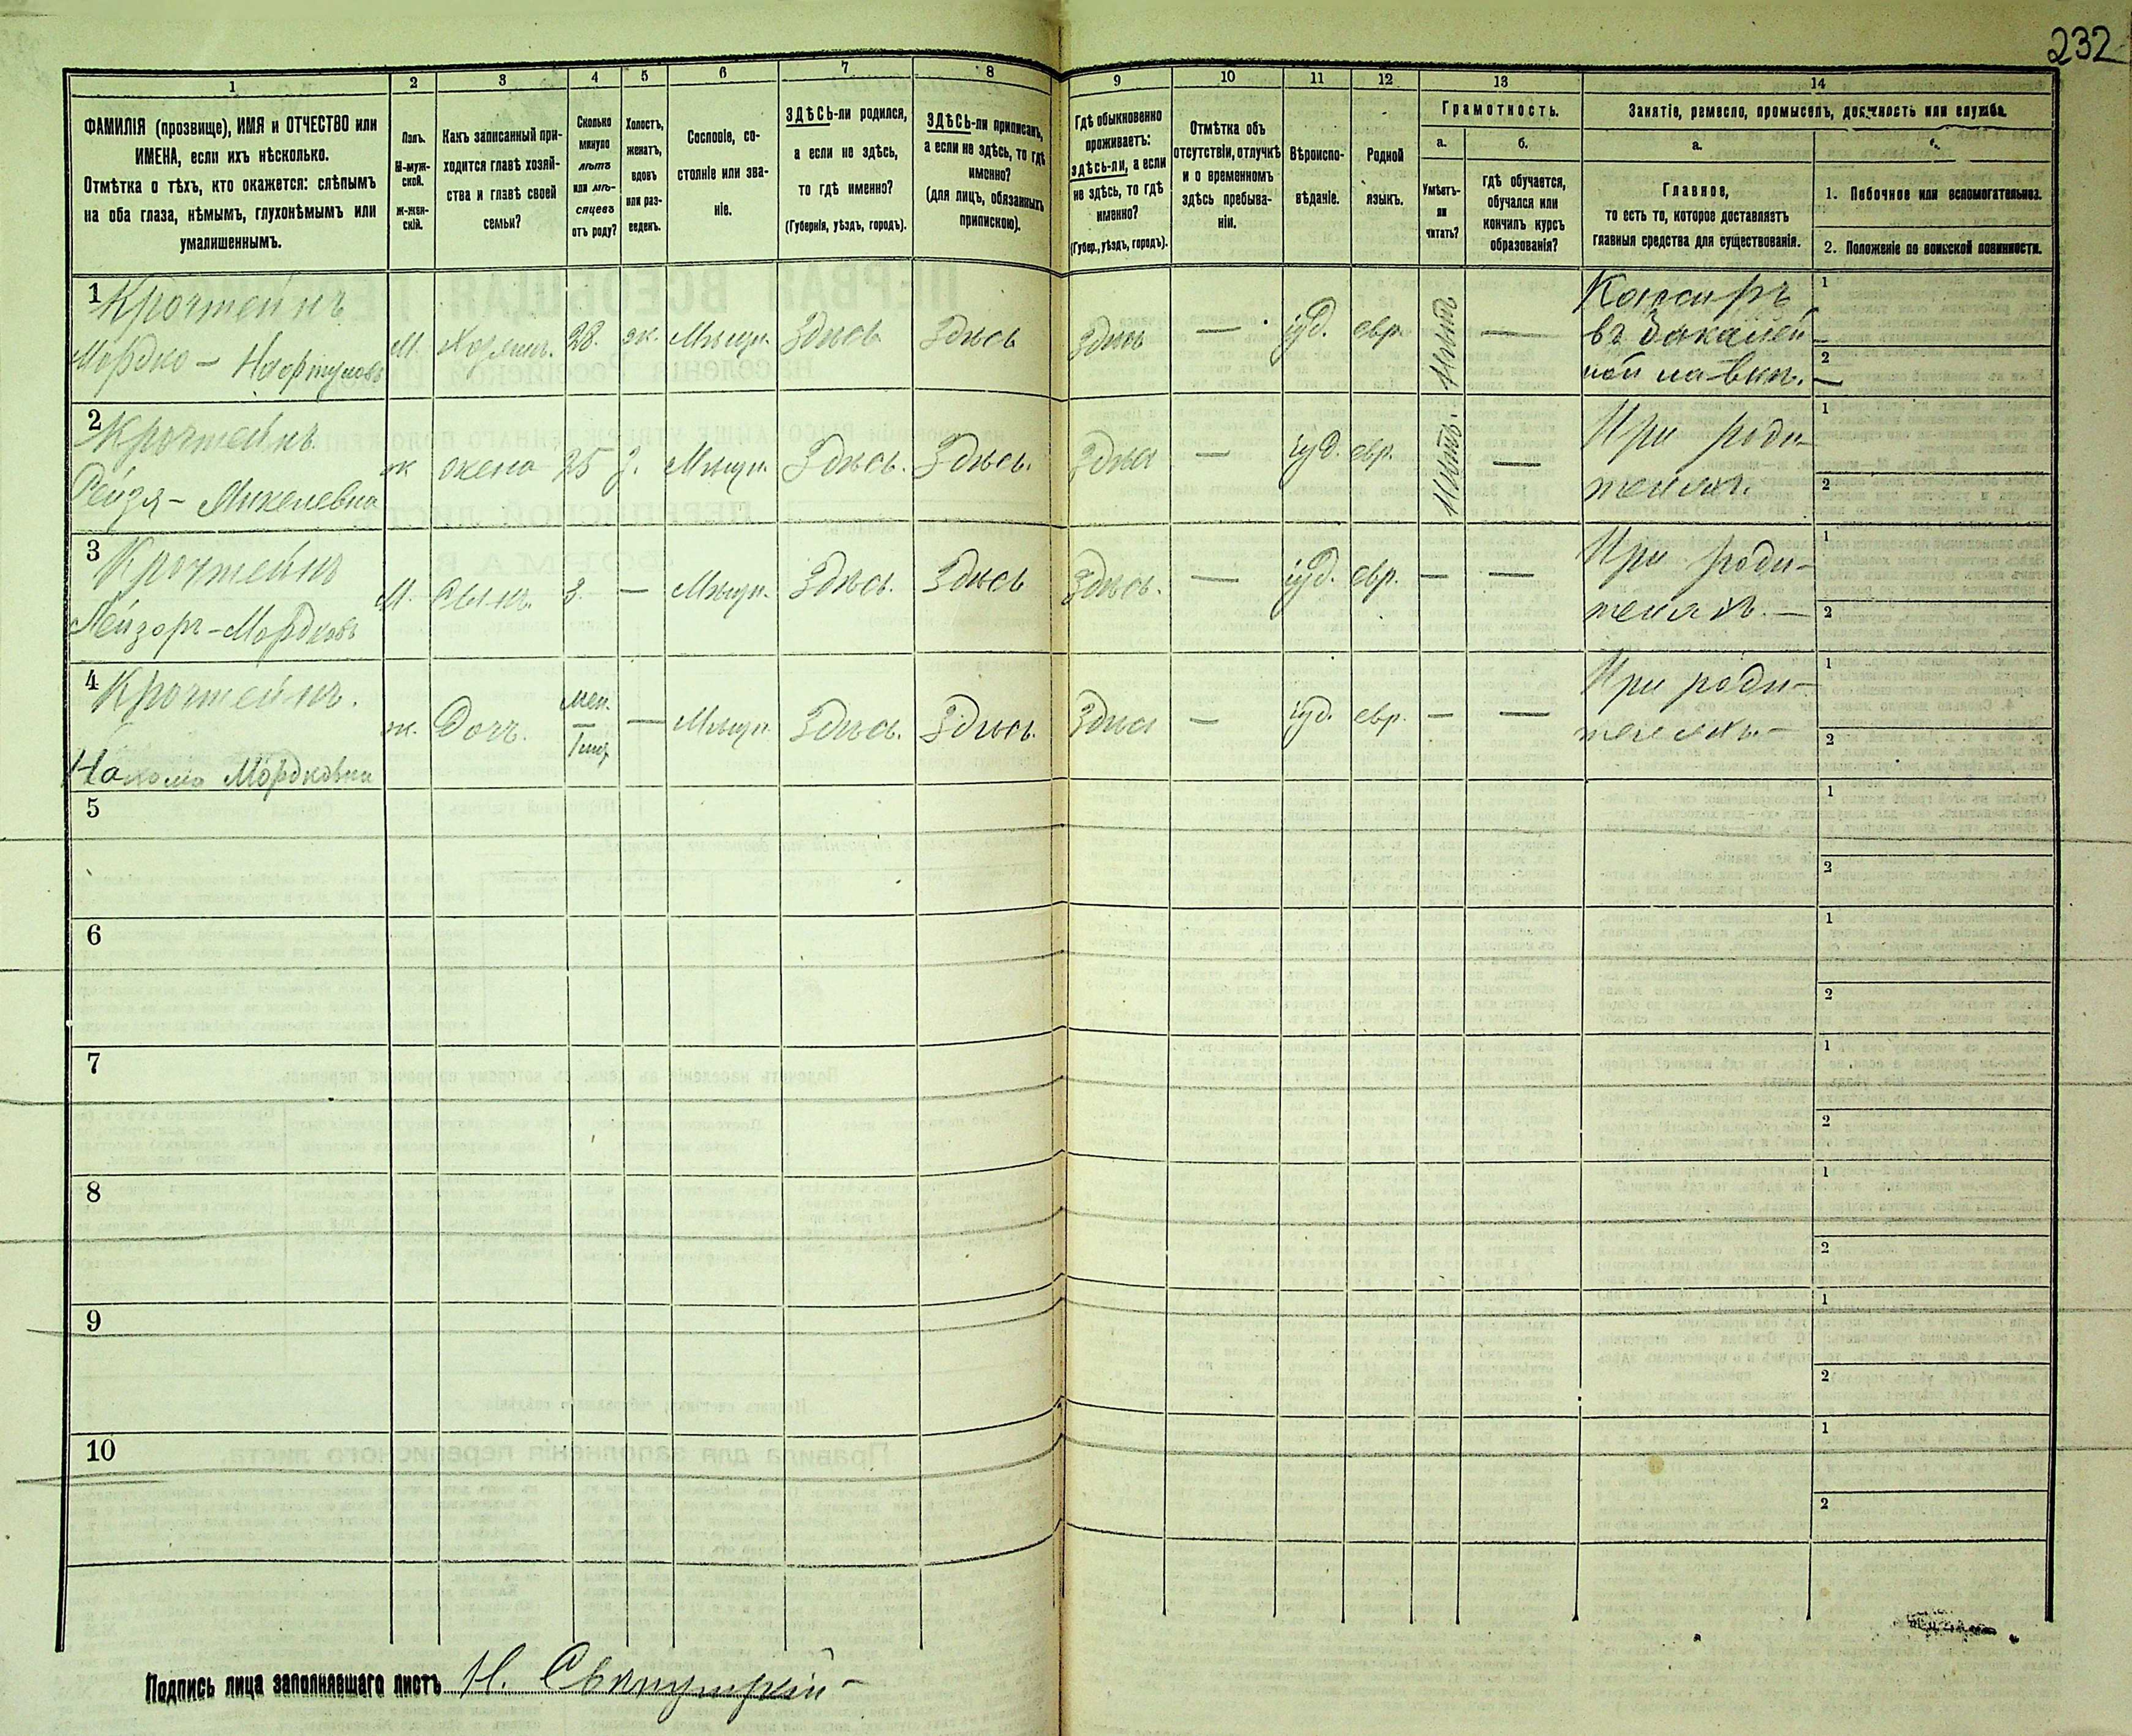 232
1 2 3 4 5 6 7 8 9 10 11 12 13 14
ФАМИЛІЯ (прозвище), ИМЯ и ОТЧЕСТВО или
ИМЕНА, если ихъ нѣсколько.
Отмѣтка о тѣхъ, кто окажется: слѣпымъ
на оба глаза, нѣмымъ, глухонѣмымъ или
умалишеннымъ.
Полъ.
М-муж-
ской.
Ж-жен-
скій.
Какъ записанный при-
ходится главѣ хозяй-
ства и главѣ своей
семьи?
Сколько
минуло
лѣтъ
или мѣ-
сяцевъ
отъ роду?
Холостъ,
женатъ,
вдовъ
или раз-
веденъ.
Сословіе, со-
стояніе или зва-
ніе.
ЗДѢСЬ-ли родился,
а если не здѣсь,
то гдѣ именно?
(Губернія, уѣздъ, городъ).
ЗДѢСЬ-ли приписанъ,
а если не здѣсь, то гдѣ
именно?
(для лицъ, обязанныхъ
припискою).
Гдѣ обыкновенно
проживаетъ:
здѣсь-ли, а если
не здѣсь, то гдѣ
именно?
(Губер., уѣздъ, городъ).
Отмѣтка объ
отсутствіи, отлучкѣ
и о временномъ
здѣсь пребыва-
ніи.
Вѣроиспо-
вѣданіе.
Родной
языкъ.
Грамотность.
а. б.
Умѣетъ-
ли
читать?
гдѣ обучается,
обучался или
кончилъ курсъ
образованія?
Занятіе, ремесло, промыселъ, должность или служба.
а.
Главное,
то есть то, которое доставляетъ
главныя средства для существованія.
1. Побочное или вспомогательное.
2. Положеніе по воинской повинности.
1 Крочтейнъ
Мордко - М. Хозяинъ. 28. ж. Мѣщан. Здѣсь Здѣсь Здѣсь — іуд. евр. Нѣтъ — Кассиръ 1
въ бакалей-
ной лавкѣ. 2 —
2 Крочтейнъ
Рейзя - Михелевна ж жена 25 з. Мѣщан. Здѣсь. Здѣсь. Здѣсь — іуд. евр. Нѣтъ. — При роди- 1
теляхъ. 2
3 Крочтейнъ
Лейзоръ - Мордковъ М. Сынъ. 3. — Мѣщан. Здѣсь. Здѣсь Здѣсь. — іуд. евр. — — При роди- 1
теляхъ. — 2
4 Крочтейнъ.
Мордковна ж. Дочь. — Мѣщан. Здѣсь. Здѣсь. Здѣсь — іуд. евр. — — При роди- 1
теляхъ — 2
5 1
2
6 1
2
7 1
2
8 1
2
9 1
2
10 1
2
Подпись лица заполнявшаго листъ Н.